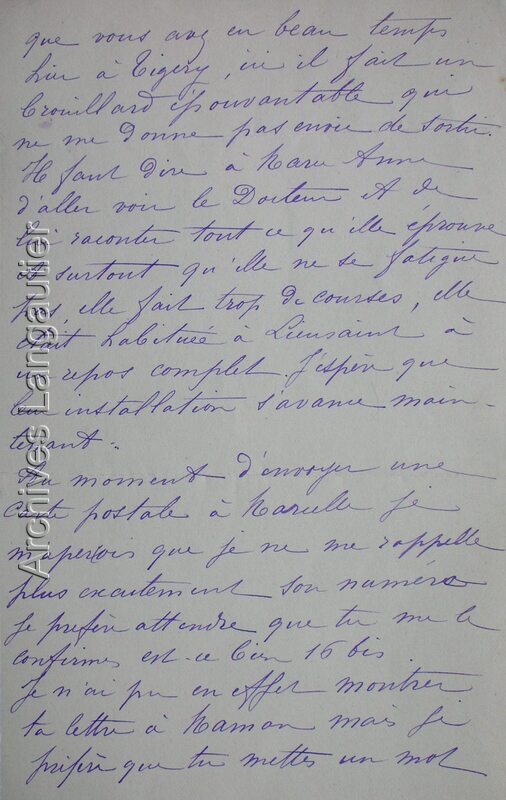 que vous avez eu beau temps
hier à Tigery, ici il fait un
brouillard épouvantable qui
ne me donne pas envie de sortir.
Il faut dire à Marie Anne
d'aller voir le Docteur et de
lui raconter tout ce qu'elle éprouve
et surtout qu'elle ne se fatigue
pas, elle fait trop de courses, elle
était habituée à Lieusaint à
un repos complet. J'espère que
leur installation s'avance main-
tenant.
Au moment d'envoyer une
carte postale à Marcelle je
m'aperçois que je ne me rappelle
plus exactement son numéro
je préfère attendre que tu me le
confirmes est-ce bien 16 bis
Je n'ai pu en effet montrer
ta lettre à Maman mais je
préfère que tu mettes un mot
Archives Langaulier